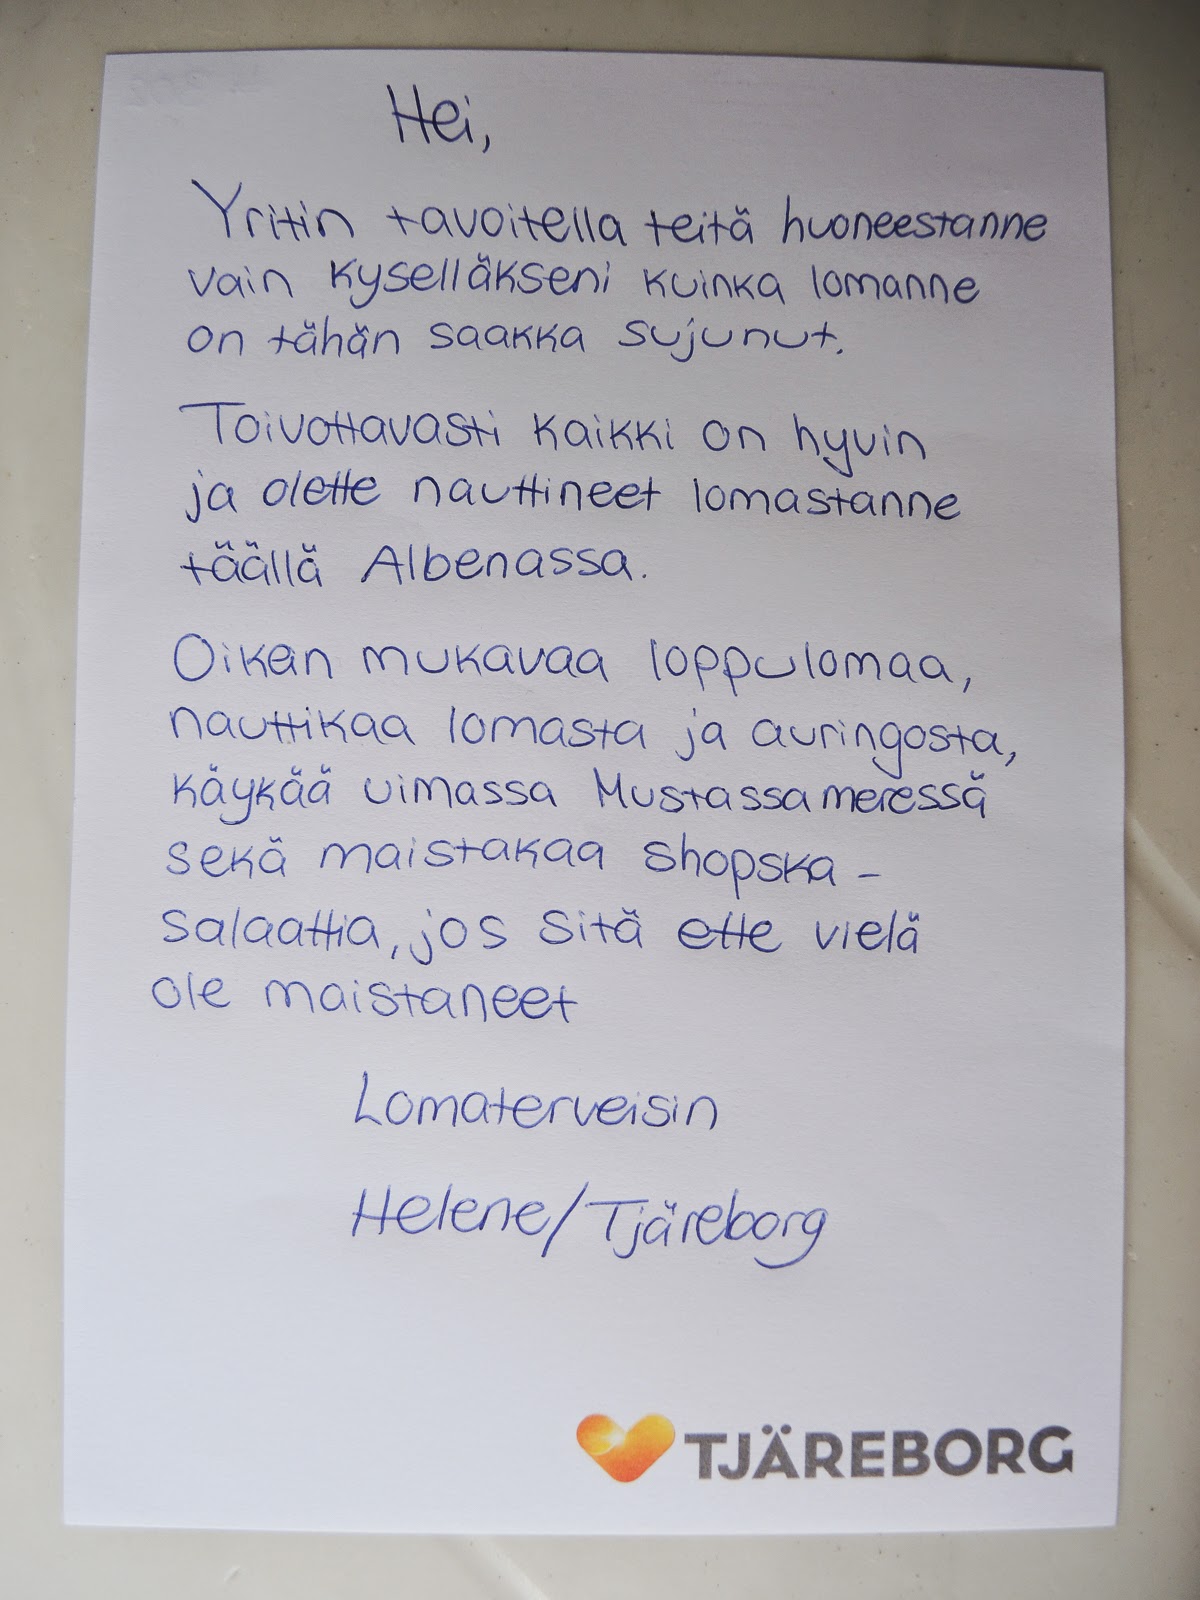 Hei,
Yritin tavoitella teitä huoneestanne
vain kyselläkseni kuinka lomanne
on tähän saakka sujunut.
Toivottavasti kaikki on hyvin
ja olette nauttineet lomastanne
täällä Albenassa.
Oikein mukavaa loppulomaa,
nauttikaa lomasta ja auringosta,
käykää uimassa Mustassameressä
sekä maistakaa shopska-
salaattia, jos sitä ette vielä
ole maistaneet
Lomaterveisin
Helene/Tjäreborg
TJÄREBORG